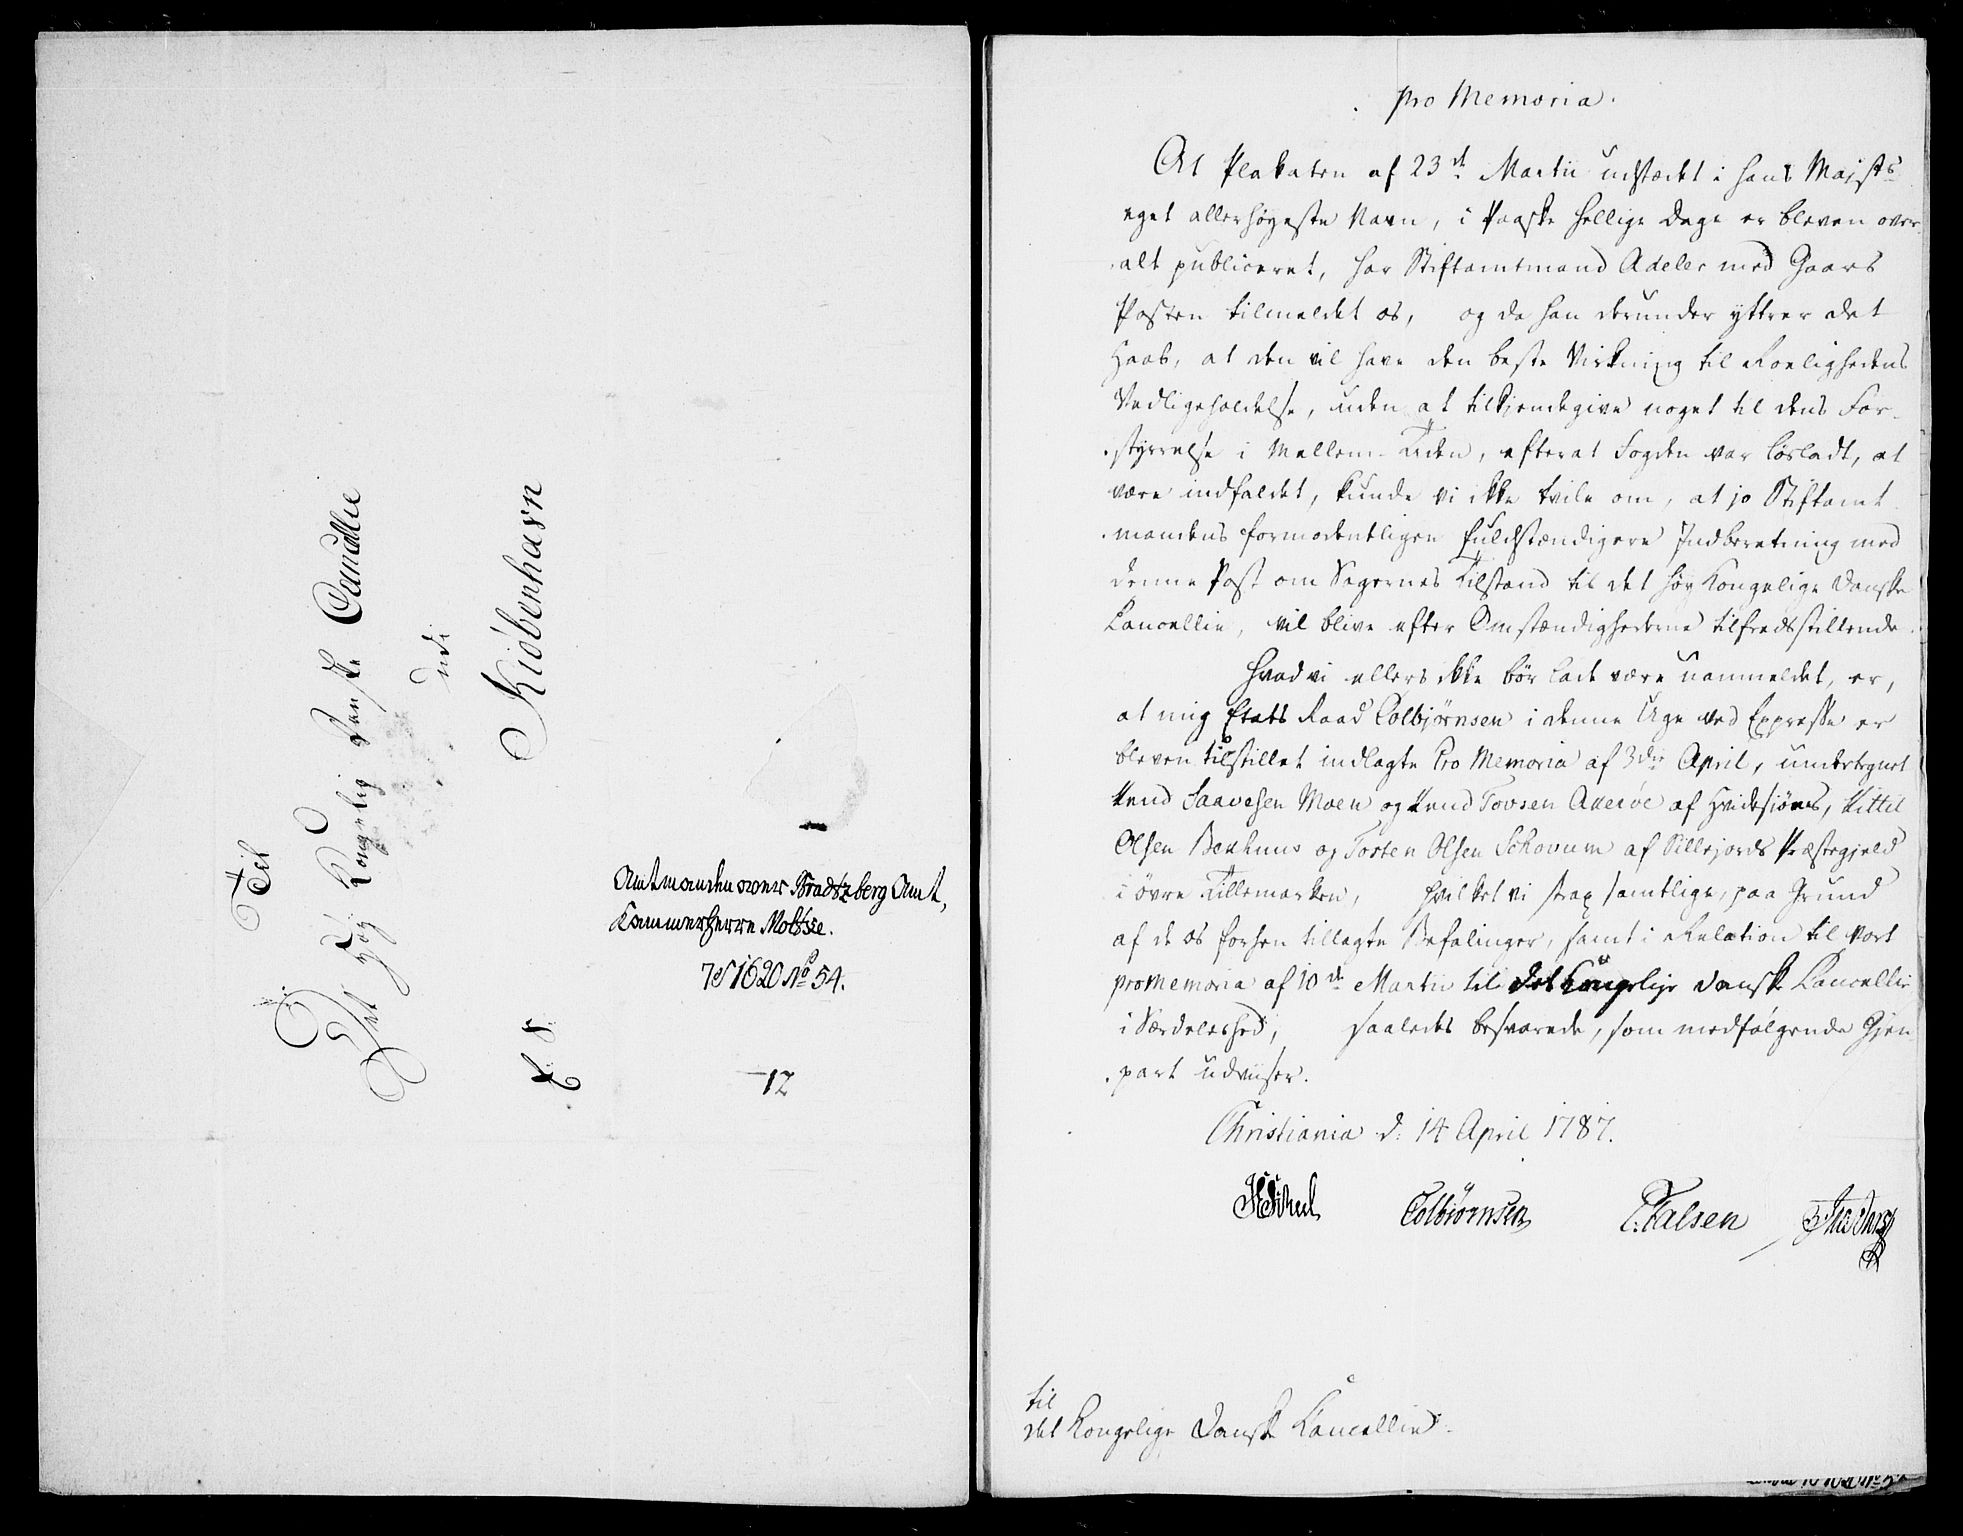 Til
Det Høy Kongelig Danske Cancellie
udi
Kiøbenhavn
Amtmanden over Bradtzberg Amt,
Kammerherre Moltke.
7d 1620 No 54.
12
pro Memoria.
At Plakaten af 23de Martii udstædt i Hans Majsts
eget allerhøyeste Navn, i Paaske Hellige Dage er bleven over-
alt publiceret, har Stiftamtmand Adeler med Gaars
Posten tilmeldet os, og da han derunder yttrer det
Haab, at den vil have den beste Virkning til Roelighedens
Vedligeholdelse, uden at tilkjendegive noget til dens For-
styrrelse i Mellem-Tiden, efterat Fogden var løsladt, at
være indfaldet, kunde vi ikke tvile om, at jo Stiftamt-
mandens formodentligen fuldstændigere Indberetning med
denne Post om Sagernes Tilstand til det høy Kongelige Danske
Cancellie, vil blive efter Omstændighederne tilfredsstillende.
Hvad vi ellers ikke bør lade være uanmeldet, er,
at mig Etats Raad Colbjørnsen i denne Uge ved Expresse er
bleven tilstillet indlagte Pro Memoria af 3die April, undertegnet
Knud Saavesen Moen og Knud Tovsen Aaerøe af Hvidesiøes, Kittil
Olsen Benhuus og Torsten Olsen Schovum af Sillejords Præstegjeld
i øvre Tillemarken, hvilket vi strax samtlige, paa Grund
af de os forhen tillagte Befalinger, samt i Relation til vort
promemoria af 10de Martii til det Kongelige Danske Cancellie
i Særdeleshed, saaledes besvarede, som medfølgende Gjen-
part udviser.
Christiania d. 14 April 1787.
Colbiørnsen E. Falsen
til
det Kongelige Danske Cancellie.